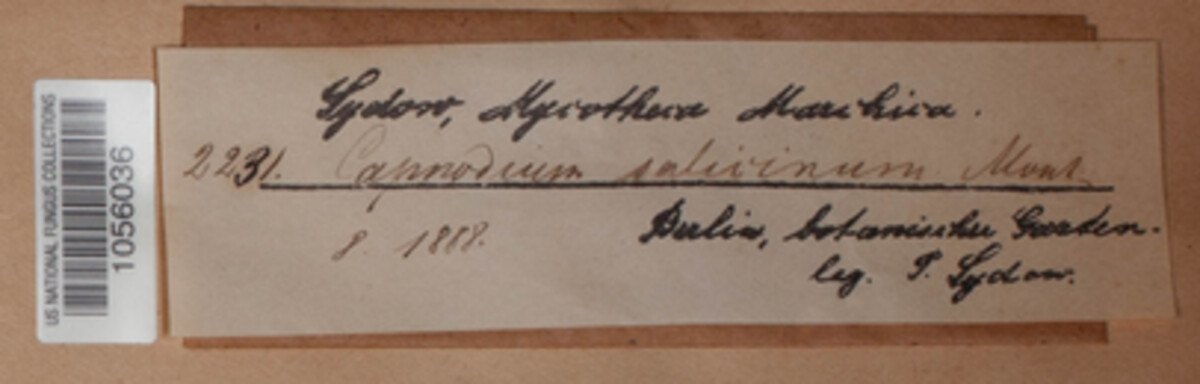 US NATIONAL FUNGUS COLLECTIONS
1056036
Sydow, Mycotheca Marchica.
2231. Capnodium salicinum Mont
8. 1888.
Berlin, botanischer Garten.
leg. P. Sydow.